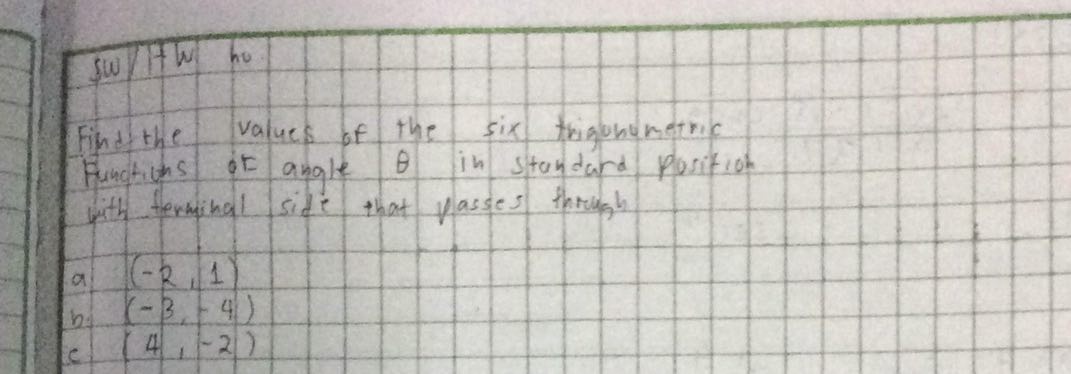 SW / HW no
Find the values of the six trigonometric
Functions of angle θ in standard position
with terminal side that passes through
a. (-2, 1)
b. (-3, -4)
c (4, -2)